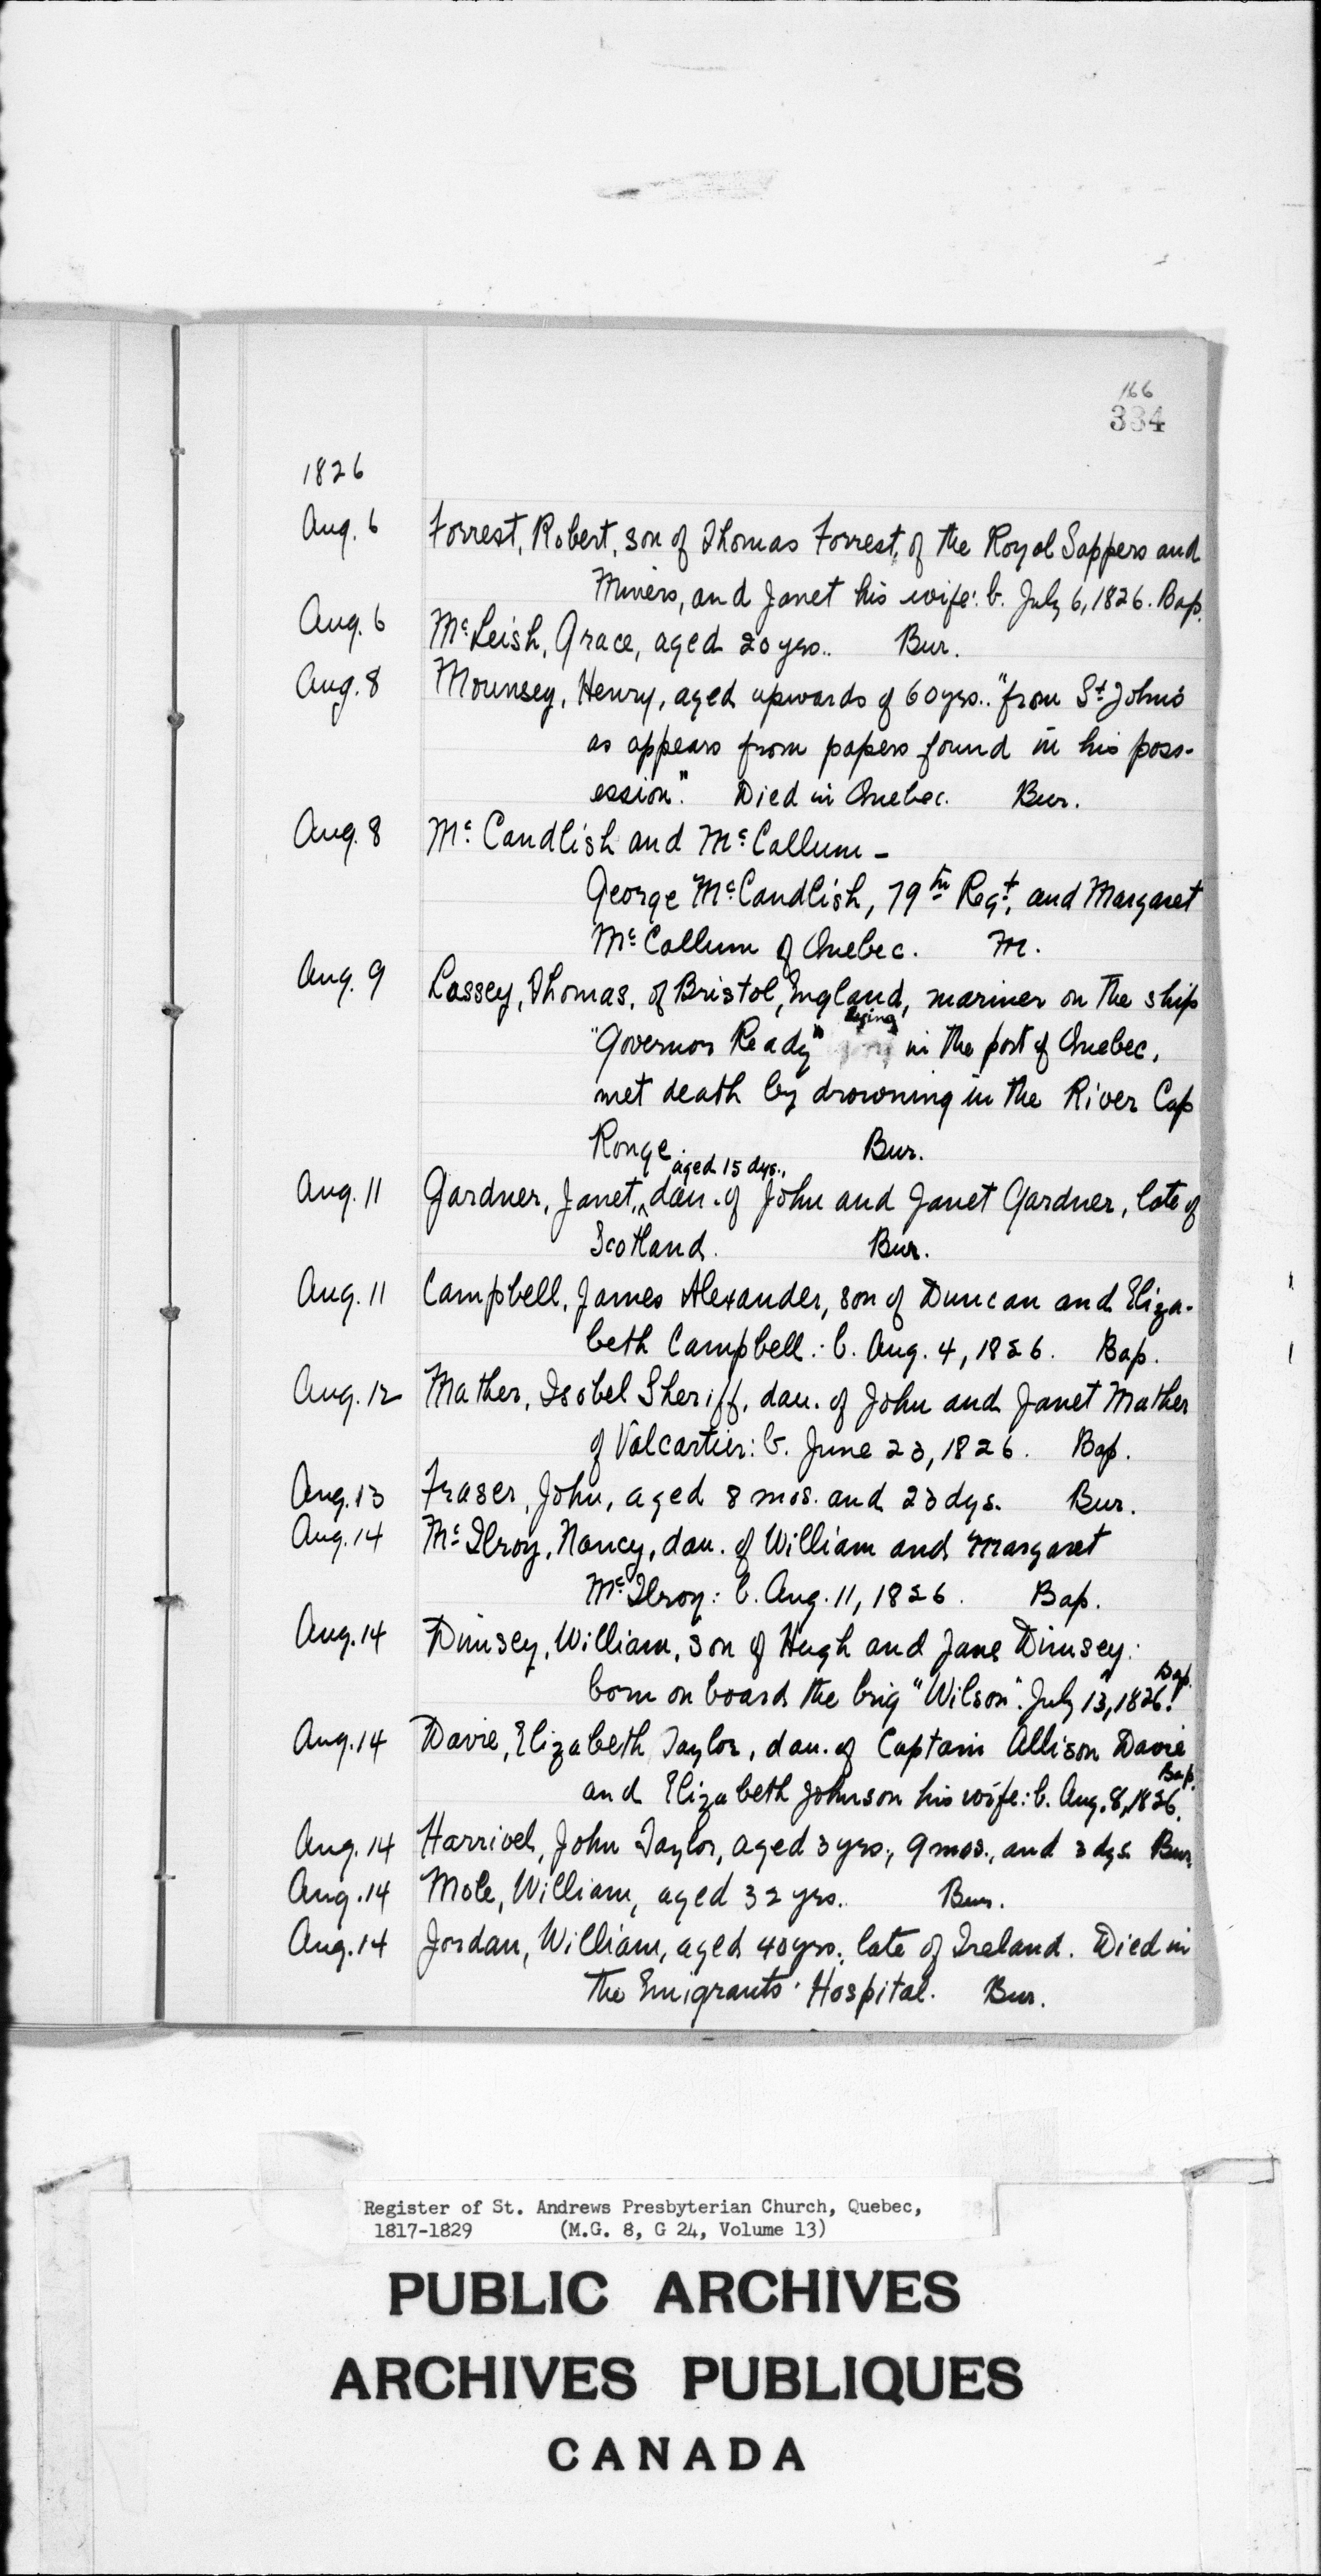 166
334
1826
Aug. 6 Forrest, Robert, son of Thomas Forrest, of the Royal Sappers and
Miners, and Janet his wife: b. July 6, 1826. Bap.
Aug. 6 Mc Leish, Grace, aged 20 yrs.. Bur.
Aug. 8 Mounsey, Henry, aged upwards of 60 yrs.. "from St. John's
as appears from papers found in his poss-
ession". Died in Quebec. Bur.
Aug. 8 Mc Candlish and Mc Callum -
George Mc Candlish, 79th Regt., and Margaret
Mc Callum of Quebec. M.
Aug. 9 Lassey, Thomas, of Bristol, England, mariner on the ship
"Governor Ready" lying in the port of Quebec,
met death by drowning in the River Cap
Rouge. Bur.
Aug. 11 Gardner, Janet, aged 15 dys., dau. of John and Janet Gardner, late of
Scotland. Bur.
Aug. 11 Campbell, James Alexander, son of Duncan and Eliza-
beth Campbell: b. Aug. 4, 1826. Bap.
Aug. 12 Mather, Isobel Sheriff, dau. of John and Janet Mather
of Valcartier: b. June 23, 1826. Bap.
Aug. 13 Fraser, John, aged 8 mos. and 23 dys. Bur.
Aug. 14 Mc Ilroy, Nancy, dau. of William and Margaret
Mc Ilroy: b. Aug. 11, 1826. Bap.
Aug. 14 Dimsey, William, son of Hugh and Jane Dimsey:
born on board the brig "Wilson". July 13, 1826. Bap.
Aug. 14 Davie, Elizabeth Taylor, dau. of Captain Allison Davie
and Elizabeth Johnson his wife: b. Aug. 8, 1826. Bap.
Aug. 14 Harrivel, John Taylor, aged 3 yrs., 9 mos., and 3 dys. Bur.
Aug. 14 Mole, William, aged 32 yrs. Bur.
Aug. 14 Jordan, William, aged 40 yrs. late of Ireland. Died in
the Emigrants' Hospital. Bur.
Register of St. Andrews Presbyterian Church, Quebec,
1817-1829 (M.G. 8, G 24, Volume 13)
PUBLIC ARCHIVES
ARCHIVES PUBLIQUES
CANADA